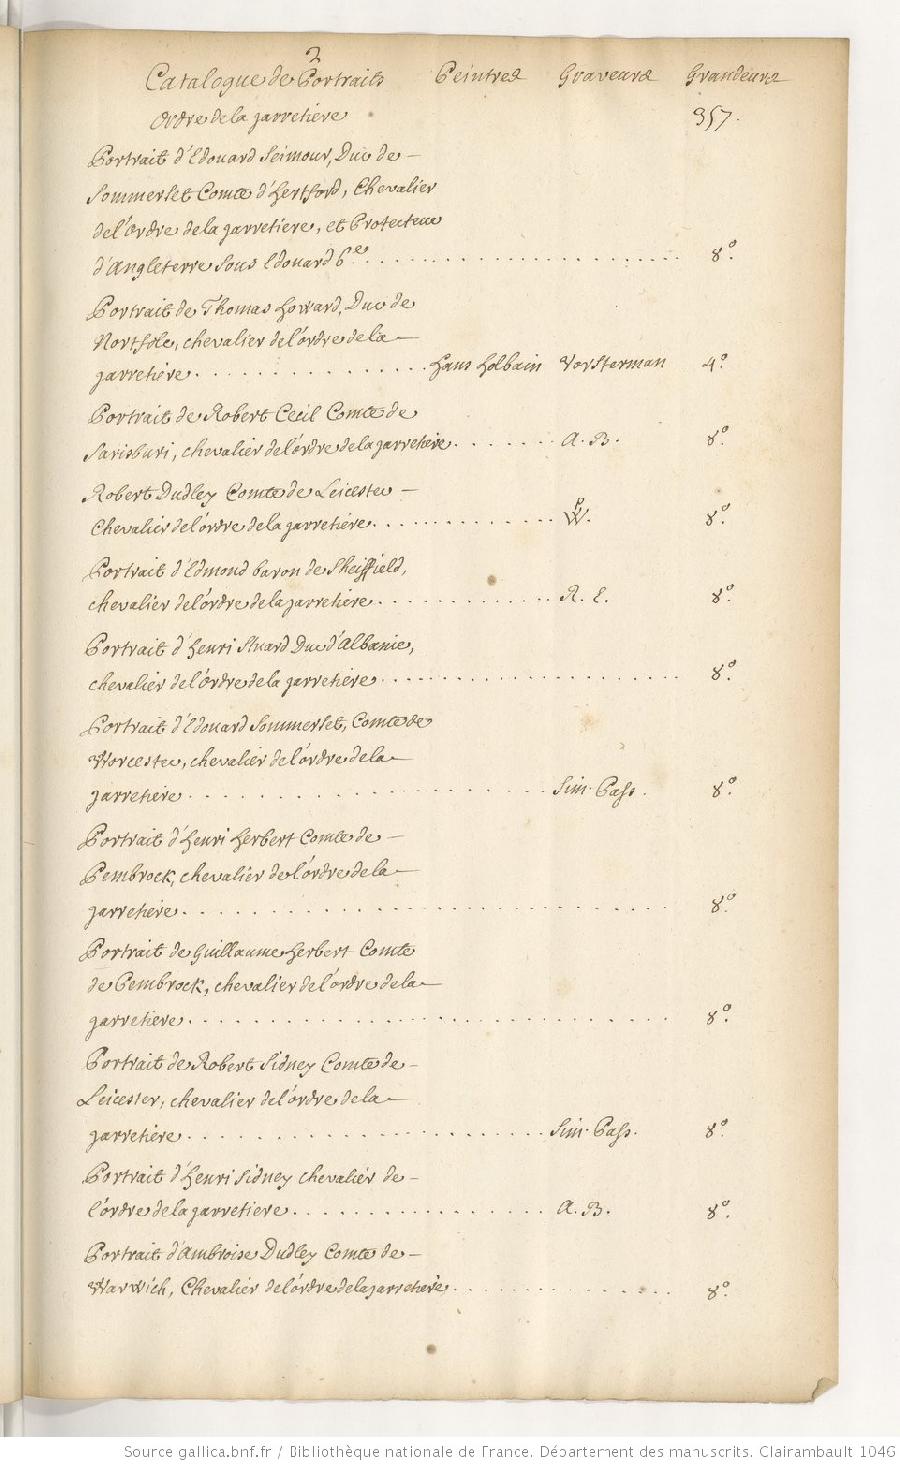 2
Catalogue de Portraits Peintres Graveurs Grandeurs
Ordre de la jarretiere 357.
Portrait d'Edouard Seimour, Duc de –
Sommerset Comte d'Hertford, Chevalier
de l'Ordre de la jarretiere, et Protecteur
d'Angleterre sous Edouard 6e. . . . . . . . . . . . . . . . . . . . . 8°.
Portrait de Thomas howard, Duc de
Northfole, chevalier de l'ordre de la –
jarretiére . . . . . . . . . . . . . . . hans holbain Vorsterman 4°.
Portrait de Robert Cecil Comte de
Sarisburi, chevalier de l'ordre de la jarretiére . . . . . . . a. B. 8°.
Robert Dudley Comte de Leicester –
Chevalier de l'ordre de la jarretiére . . . . . . . . . . . . . W. 8°.
Portrait d'Edmond baron de Sheiffield,
chevalier de l'ordre de la jarretiére . . . . . . . . . . . . . R. E. 8°.
Portrait d'henri Stuard Duc d'Albanie,
chevalier de l'ordre de la jarretiére . . . . . . . . . . . . . . . . . . . 8°.
Portrait d'Edouard Sommerset, Comte de
Worcester, chevalier de l'ordre de la –
jarretiére . . . . . . . . . . . . . . . . . . . . . Sim. Pass. 8°.
Portrait d'henri herbert Comte de –
Pembrock, chevalier de l'ordre de la –
jarretiére . . . . . . . . . . . . . . . . . . . . . . . . . . . . 8°.
Portrait de Guillaume herbert Comte
de Pembrock, chevalier de l'ordre de la –
jarretiere . . . . . . . . . . . . . . . . . . . . . . . . . . . . 8°.
Portrait de Robert Sidney Comte de –
Leicester, chevalier de l'ordre de la –
jarretiére . . . . . . . . . . . . . . . . . . . . . Sim. Pass. 8°.
Portrait d'henri Sidney chevalier de –
l'ordre de la jarretiere . . . . . . . . . . . . . . . . . a. B. 8°.
Portrait d'Ambroise Dudley Comte de –
Warwich, Chevalier de l'ordre de la jarretiére . . . . . . . . . . . . . . 8°.
Source gallica.bnf.fr / Bibliothèque nationale de France. Département des manuscrits. Clairambault 1046